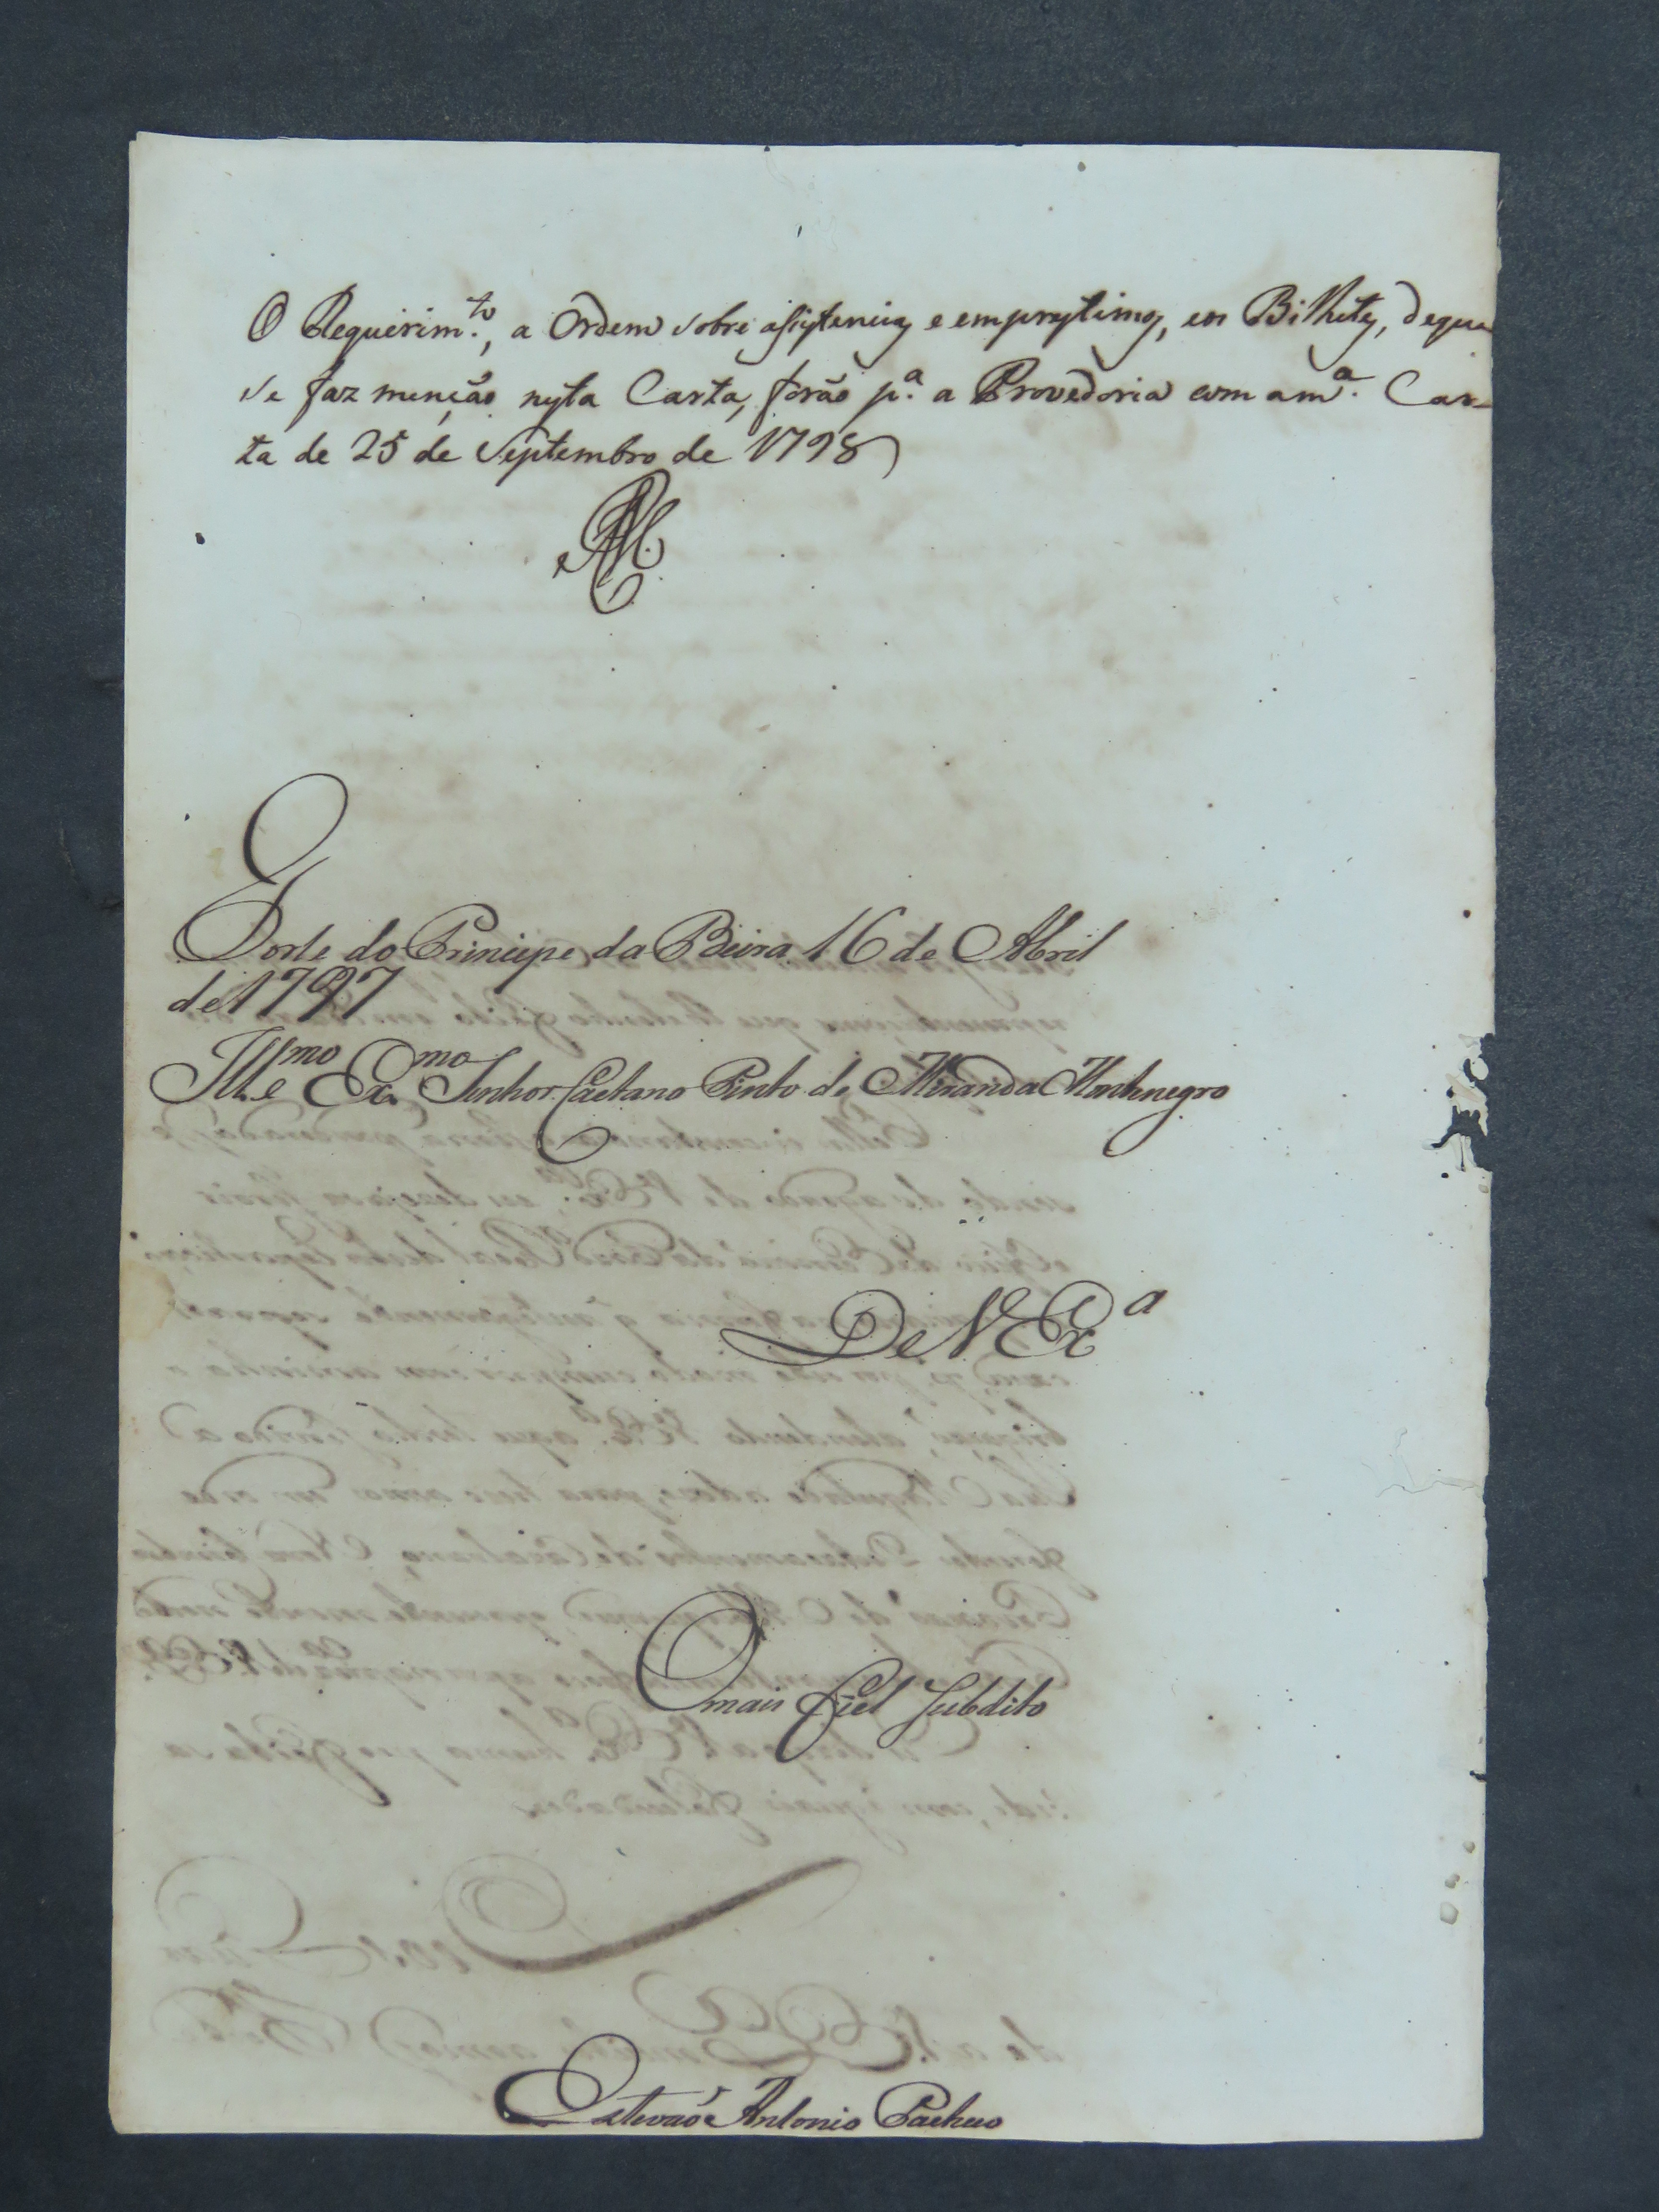 O Requerim.to, a Ordem sobre assistencias e emprestimos, e os Bilhetes, de que
se faz menção nesta Carta, forão p.a a Provedoria com a m.a Car-
ta de 25 de Septembro de 1798
Forte do Principe da Beira 16 de Abril
de 1797
Ill.mo e Ex.mo Senhor Caetano Pinto de Miranda Montenegro
De V. Ex.a
O mais fiel Subdito
Estevaõ Antonio Pacheco